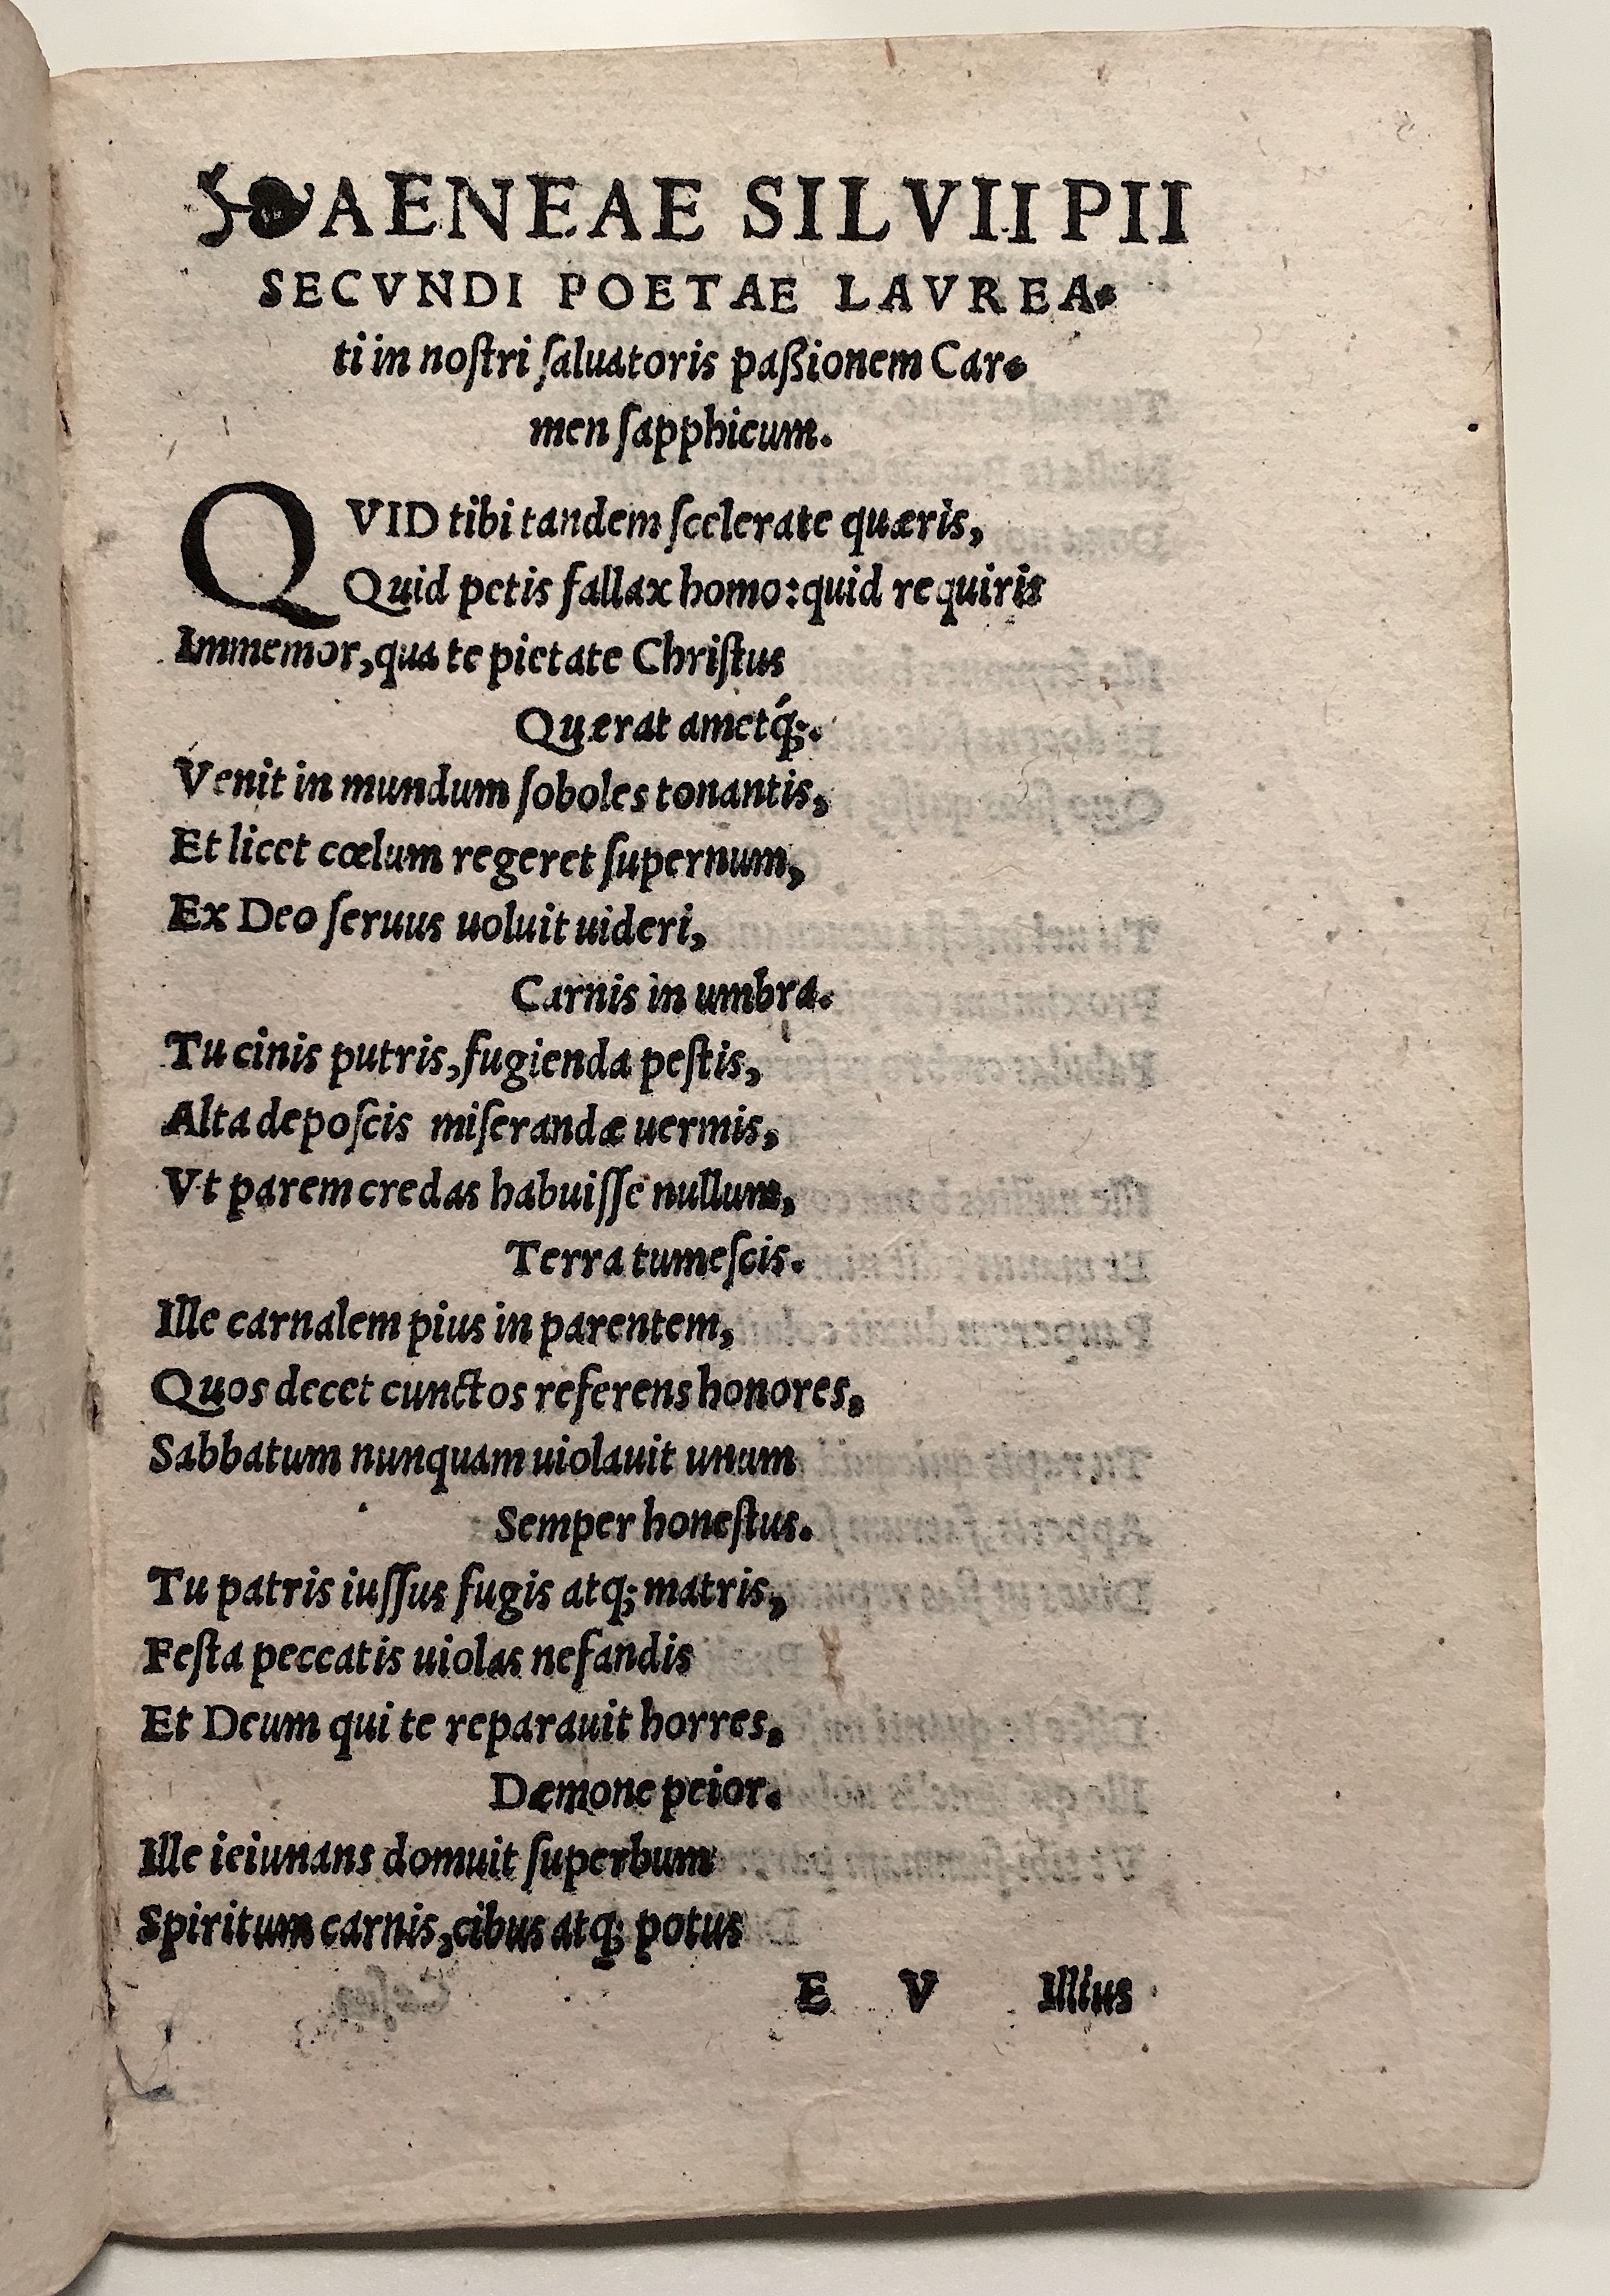 AENEAE SILVII PII
SECVNDI POETAE LAVREA-
ti in noſtri ſaluatoris paßionem Car-
men ſapphicum.
QVID tibi tandem ſcelerate quæris,
Quid petis fallax homo: quid requiris
Immemor, qua te pietate Chriſtus
Quęrat ametq́;.
Venit in mundum ſoboles tonantis,
Et licet cœlum regeret ſupernum,
Ex Deo ſeruus uoluit uideri,
Carnis in umbra.
Tu cinis putris, fugienda peſtis,
Alta depoſcis miſerandæ uermis,
Vt parem credas habuiſſe nullum,
Terra tumeſcis.
Ille carnalem pius in parentem,
Quos decet cunctos referens honores,
Sabbatum nunquam uiolauit unum
Semper honeſtus.
Tu patris iuſſus fugis atq; matris,
Feſta peccatis uiolas nefandis
Et Deum qui te reparauit horres,
Dæmone peior.
Ille ieiunans domuit ſuperbum
Spiritum carnis, cibus atq; potus
E V Illius